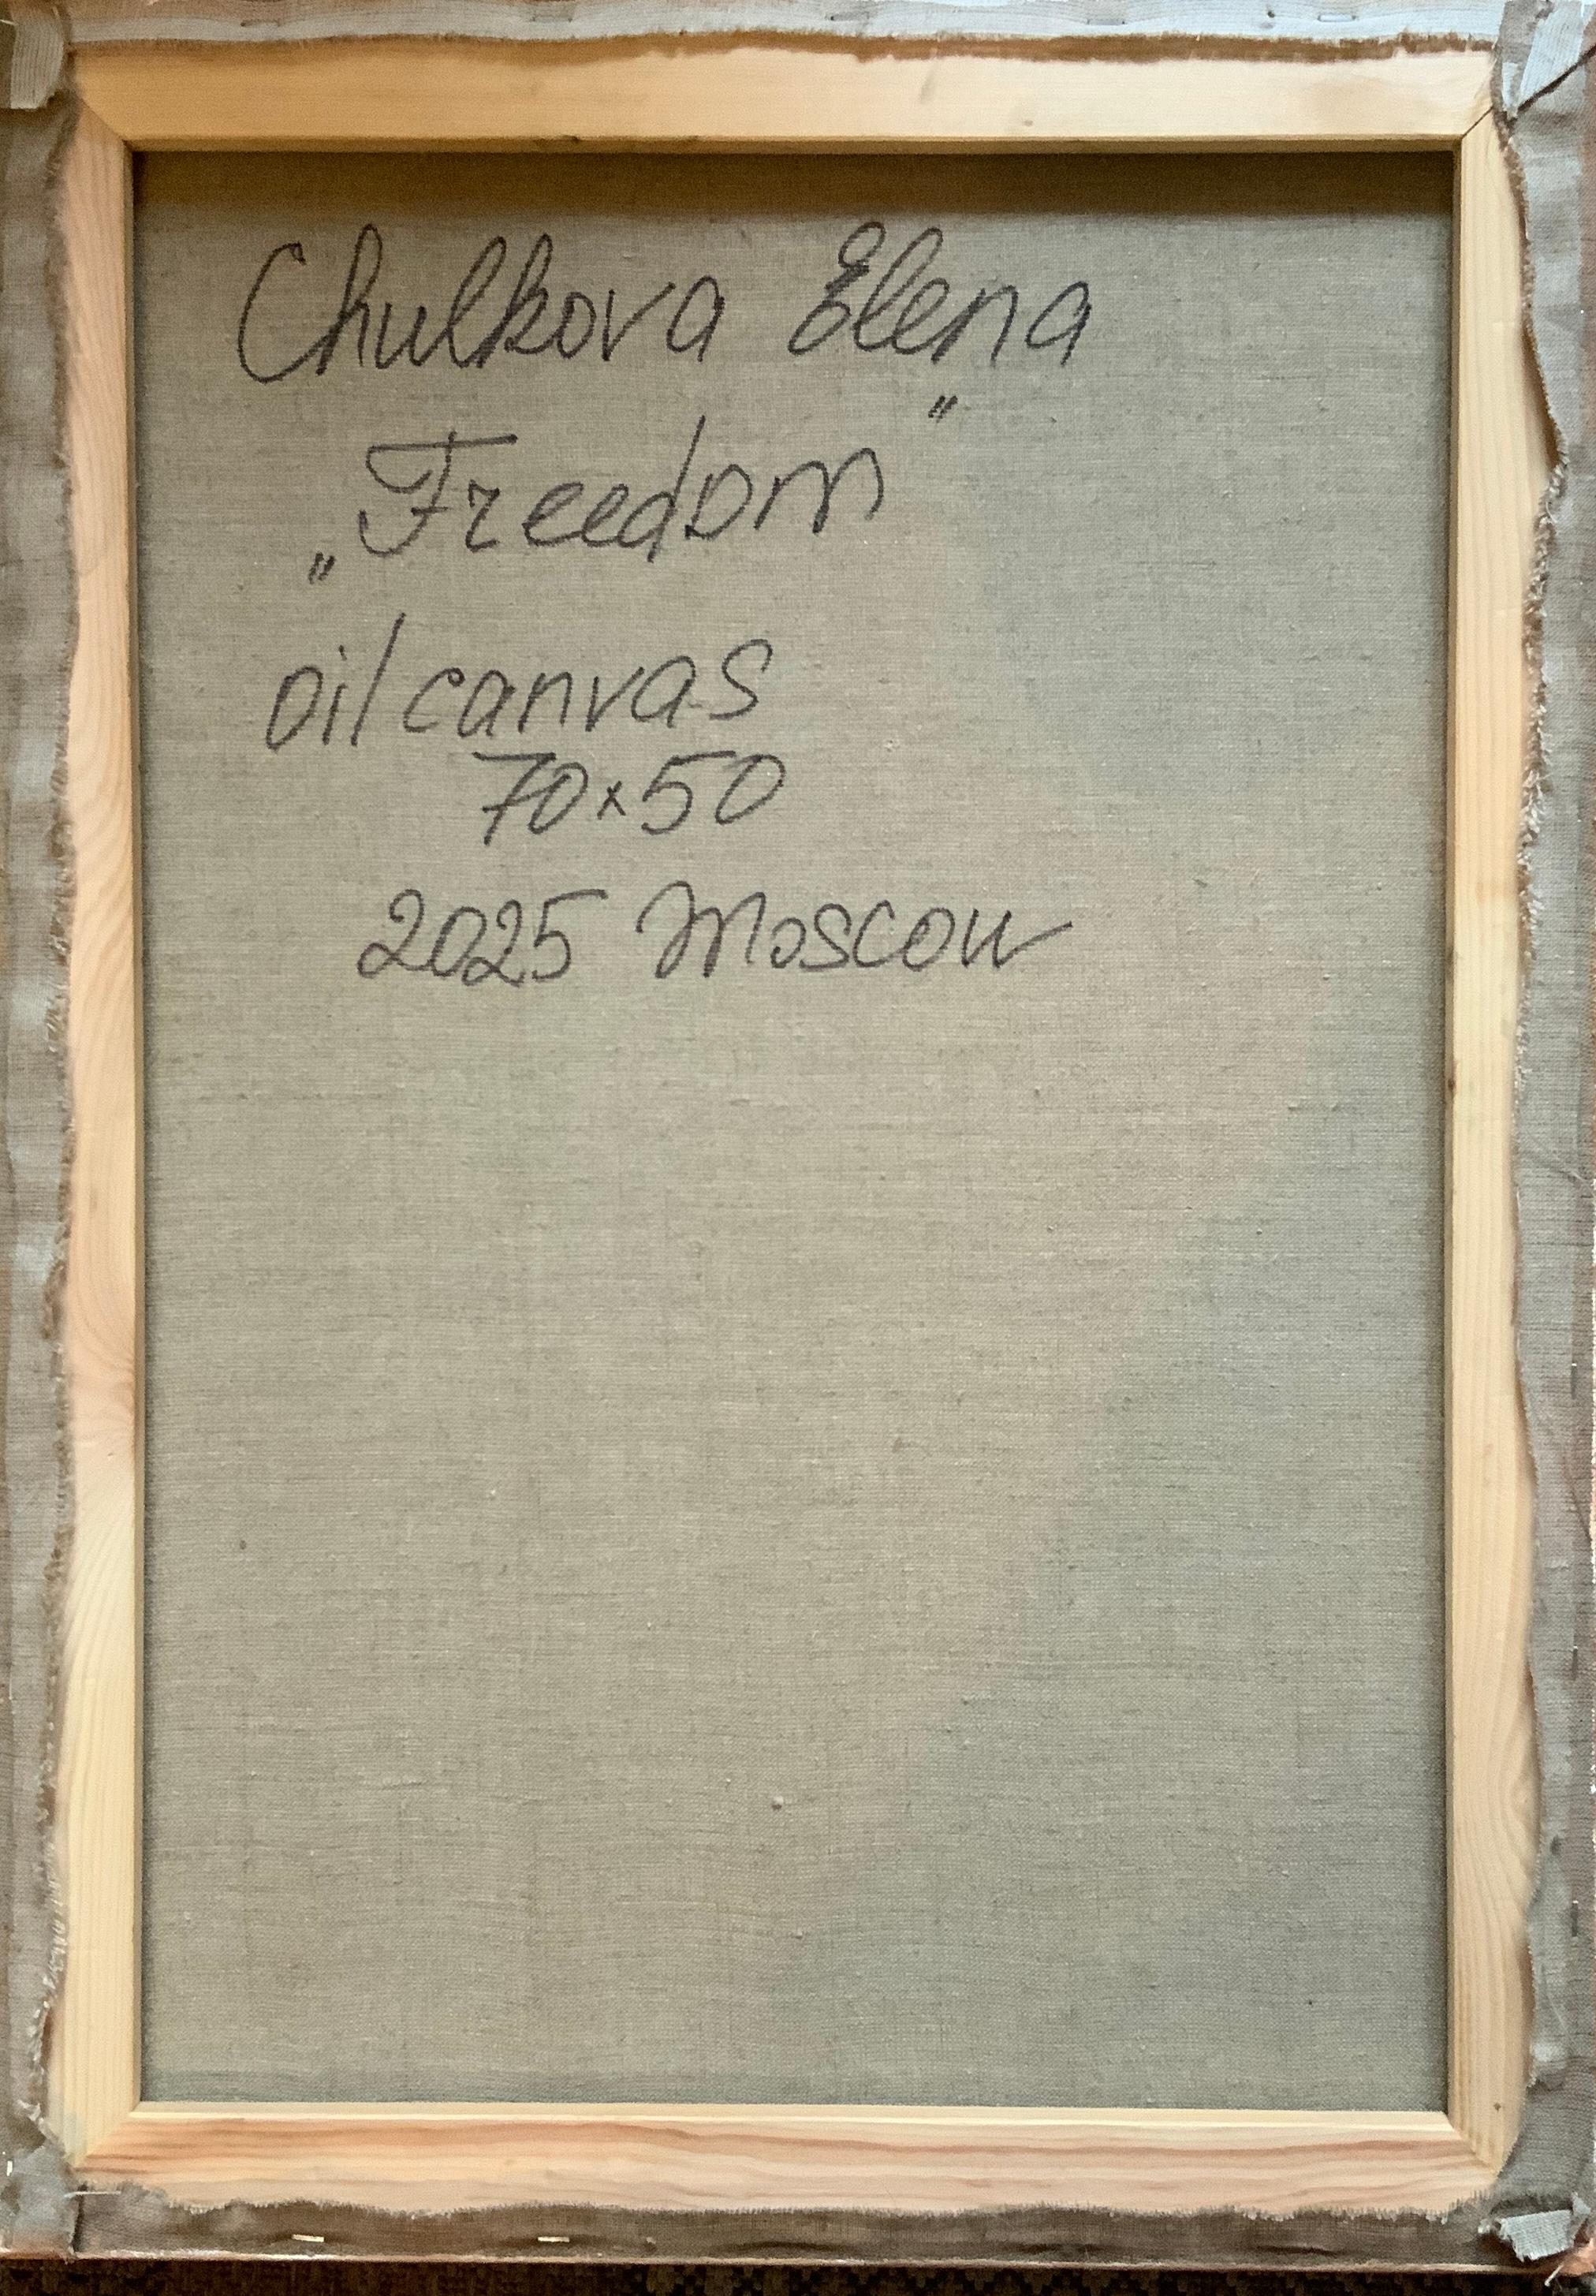 Chulkova Elena
„Freedom"
oil/canvas
70x50
2025 Moscow